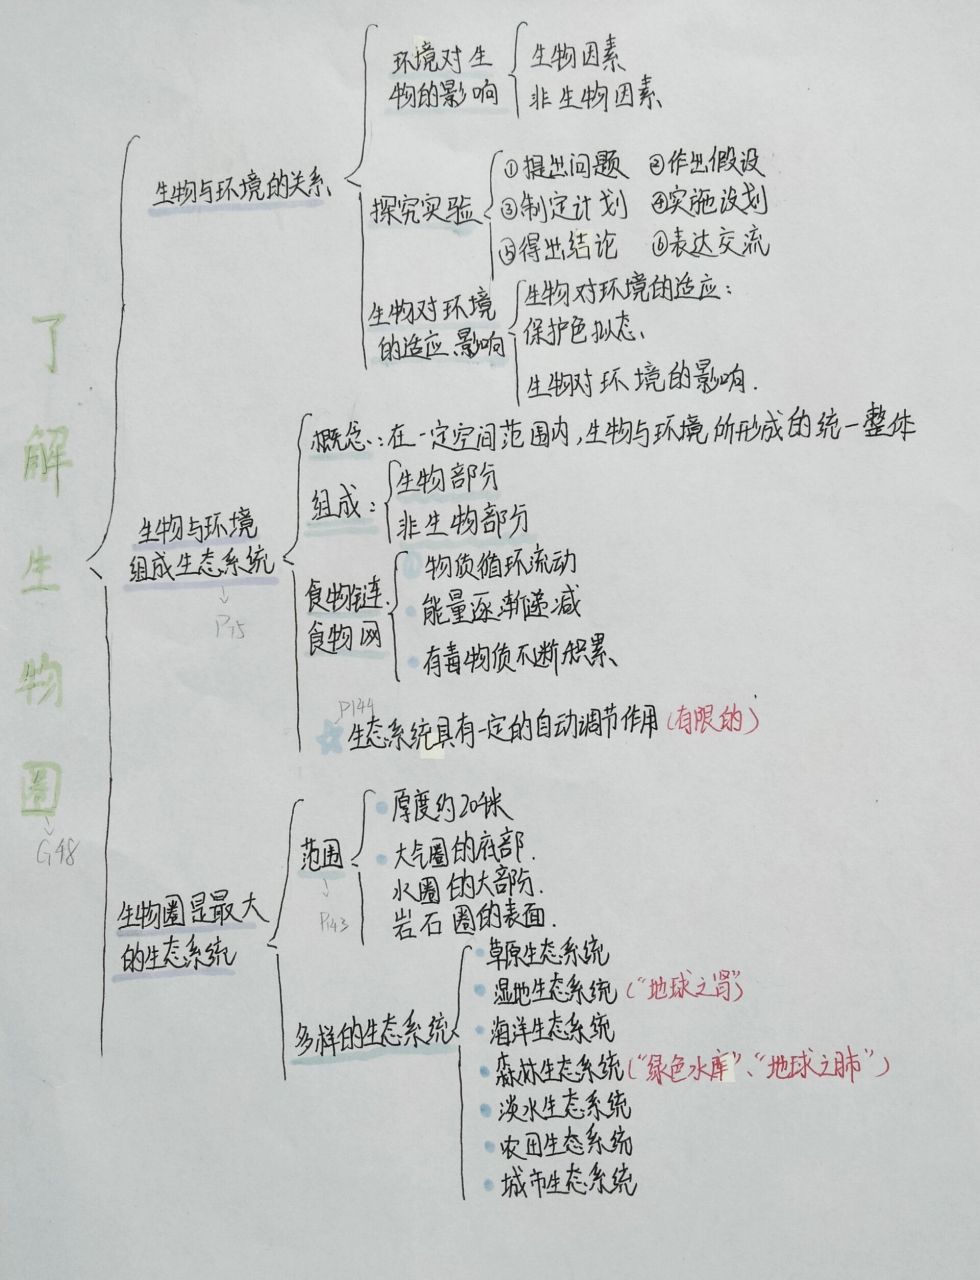 了解生物圈
G48
生物与环境的关系
环境对生
物的影响
生物因素
非生物因素
探究实验
①提出问题 ②作出假设
③制定计划 ④实施设划
⑤得出结论 ⑥表达交流
生物对环境
的适应、影响
生物对环境的适应：
保护色拟态、
生物对环境的影响.
生物与环境
组成生态系统
P75
概念：在一定空间范围内,生物与环境所形成的统一整体
组成：
生物部分
非生物部分
食物链.
食物网
物质循环流动
能量逐渐递减
有毒物质不断积累、
P144
生态系统具有一定的自动调节作用(有限的)
生物圈是最大
的生态系统
范围
P143
厚度约20米
大气圈的底部.
水圈的大部分.
岩石圈的表面.
多样的生态系统
草原生态系统
湿地生态系统("地球之肾")
海洋生态系统
森林生态系统("绿色水库"、"地球之肺")
淡水生态系统
农田生态系统
城市生态系统